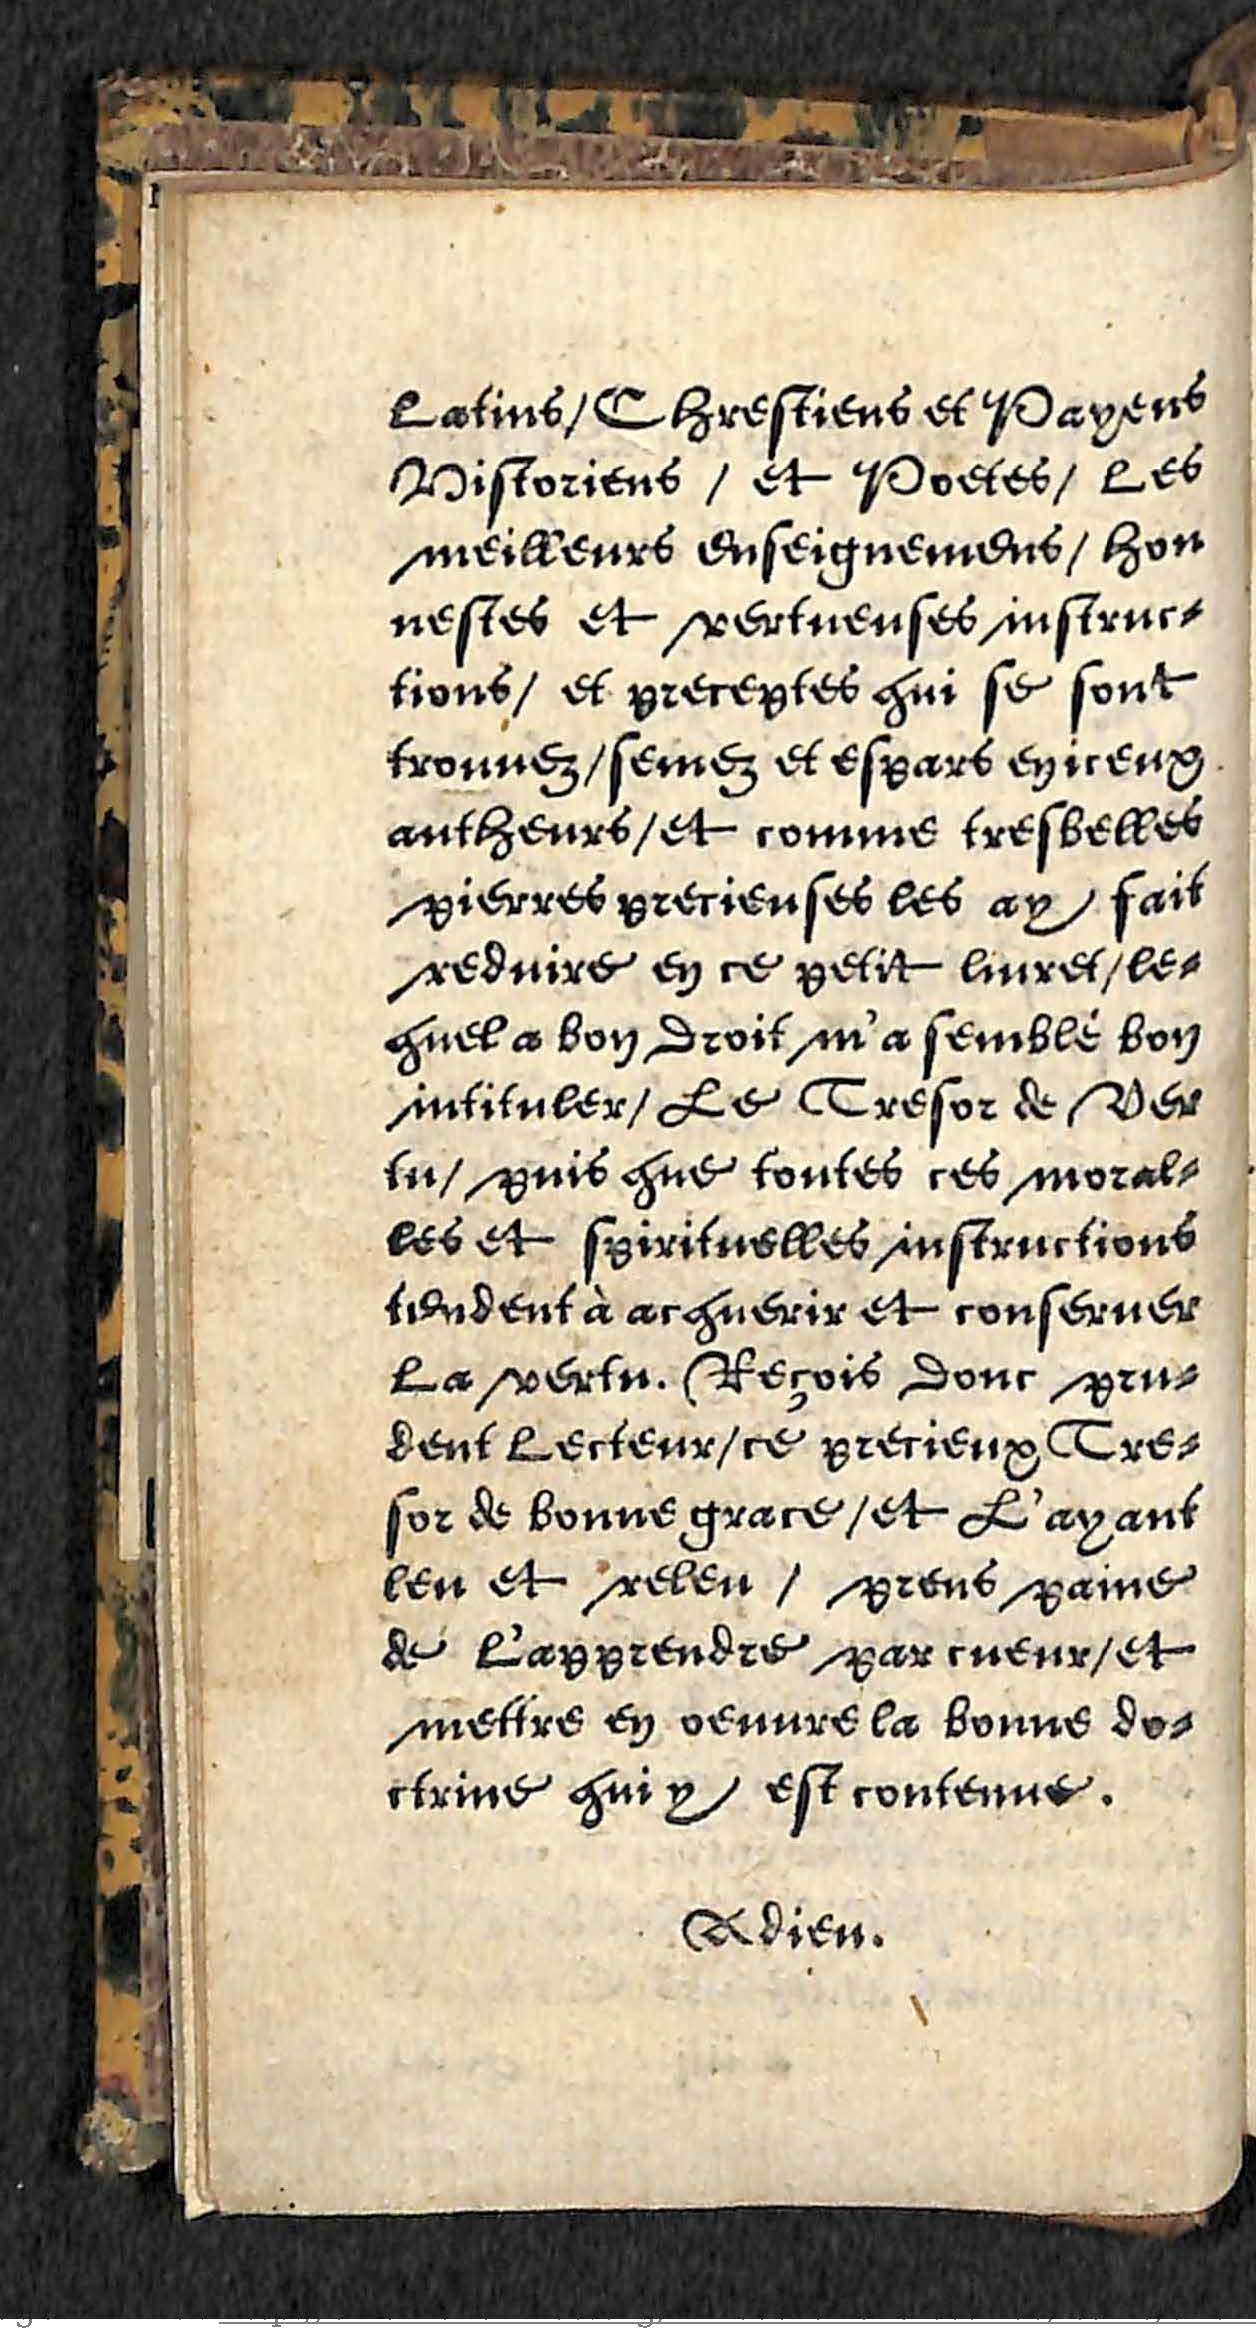 Latins/ Chrestiens et Payens
Historiens / et Poetes/ Les
meilleurs enseignemens/ hon
nestes et vertueuses instruc-
tions/ et preceptes qui se sont
trouuez/ semez et espars en iceux
autheurs/ et comme tresbelles
pierres precieuses les ay fait
reduire en ce petit liuret/ le-
quel a bon droit m'a semblé bon
intituler/ Le Tresor de Ver
tu/ puis que toutes ces moral-
les et spirituelles instructions
tendent à acquerir et conseruer
La vertu. Reçois donc pru-
dent Lecteur/ ce precieux Tre-
sor de bonne grace/ et L'ayant
leu et releu / prens paine
de L'apprendre par cueur/ et
mettre en oeuure la bonne do-
ctrine qui y est contenue.
Adieu.